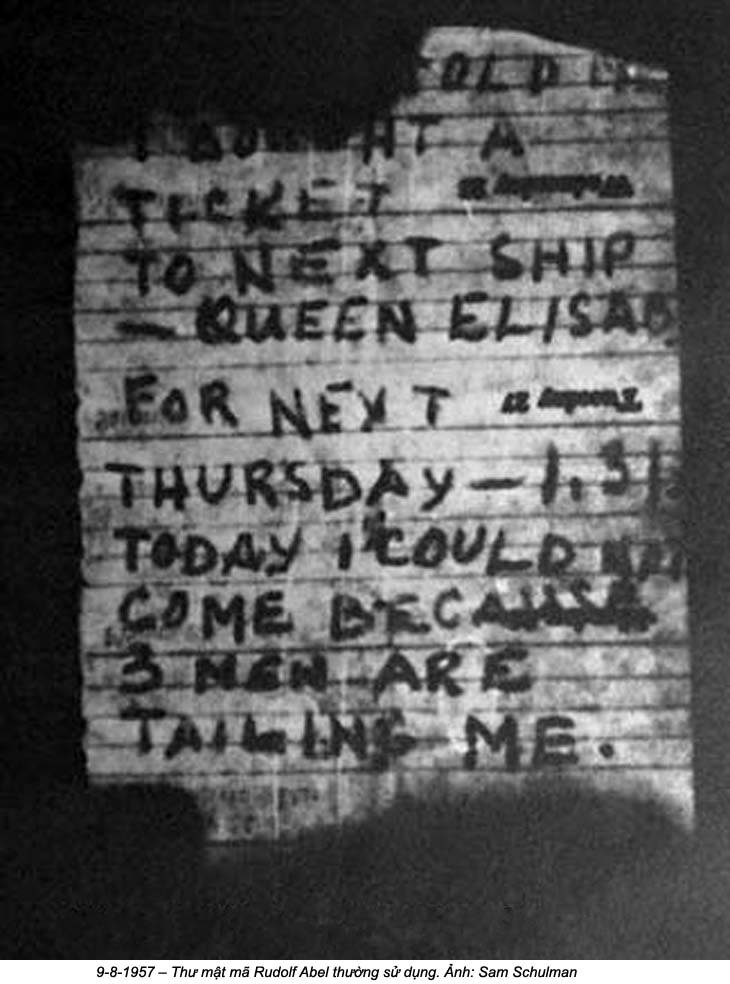 OLD
I BOUGHT A
TICKET
TO NEXT SHIP
— QUEEN ELISAB
FOR NEXT Tuesday 27
THURSDAY — 1.31
TODAY I COULD NOT
COME BECAUSE
3 MEN ARE
TAILING ME.
9-8-1957 – Thư mật mã Rudolf Abel thường sử dụng. Ảnh: Sam Schulman